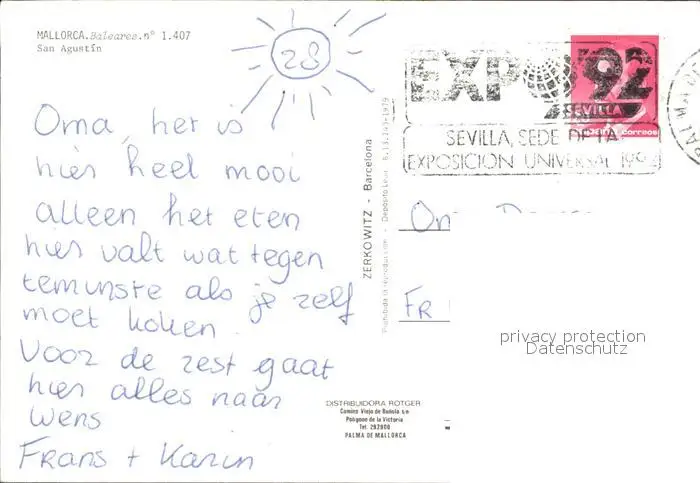 MALLORCA.Baleares.nº 1.407
San Agustín
28
Oma, het is
hier heel mooi
alleen het eten
hier valt wat tegen
temunste als je zelf
moet koken.
Voor de rest gaat
hier alles naar
wens
Frans + Karin
ZERKOWITZ - Barcelona
Prohibida la reproducción - Depósito Legal B.13.243-1979
EXPO 92
SEVILLA
SEVILLA, SEDE DE LA
EXPOSICION UNIVERSAL 1992
correos
FR
privacy protection
Datenschutz
DISTRIBUIDORA ROTGER
Camino Viejo de Buñola s/n
Polígono de la Victoria
Tel. 292900
PALMA DE MALLORCA